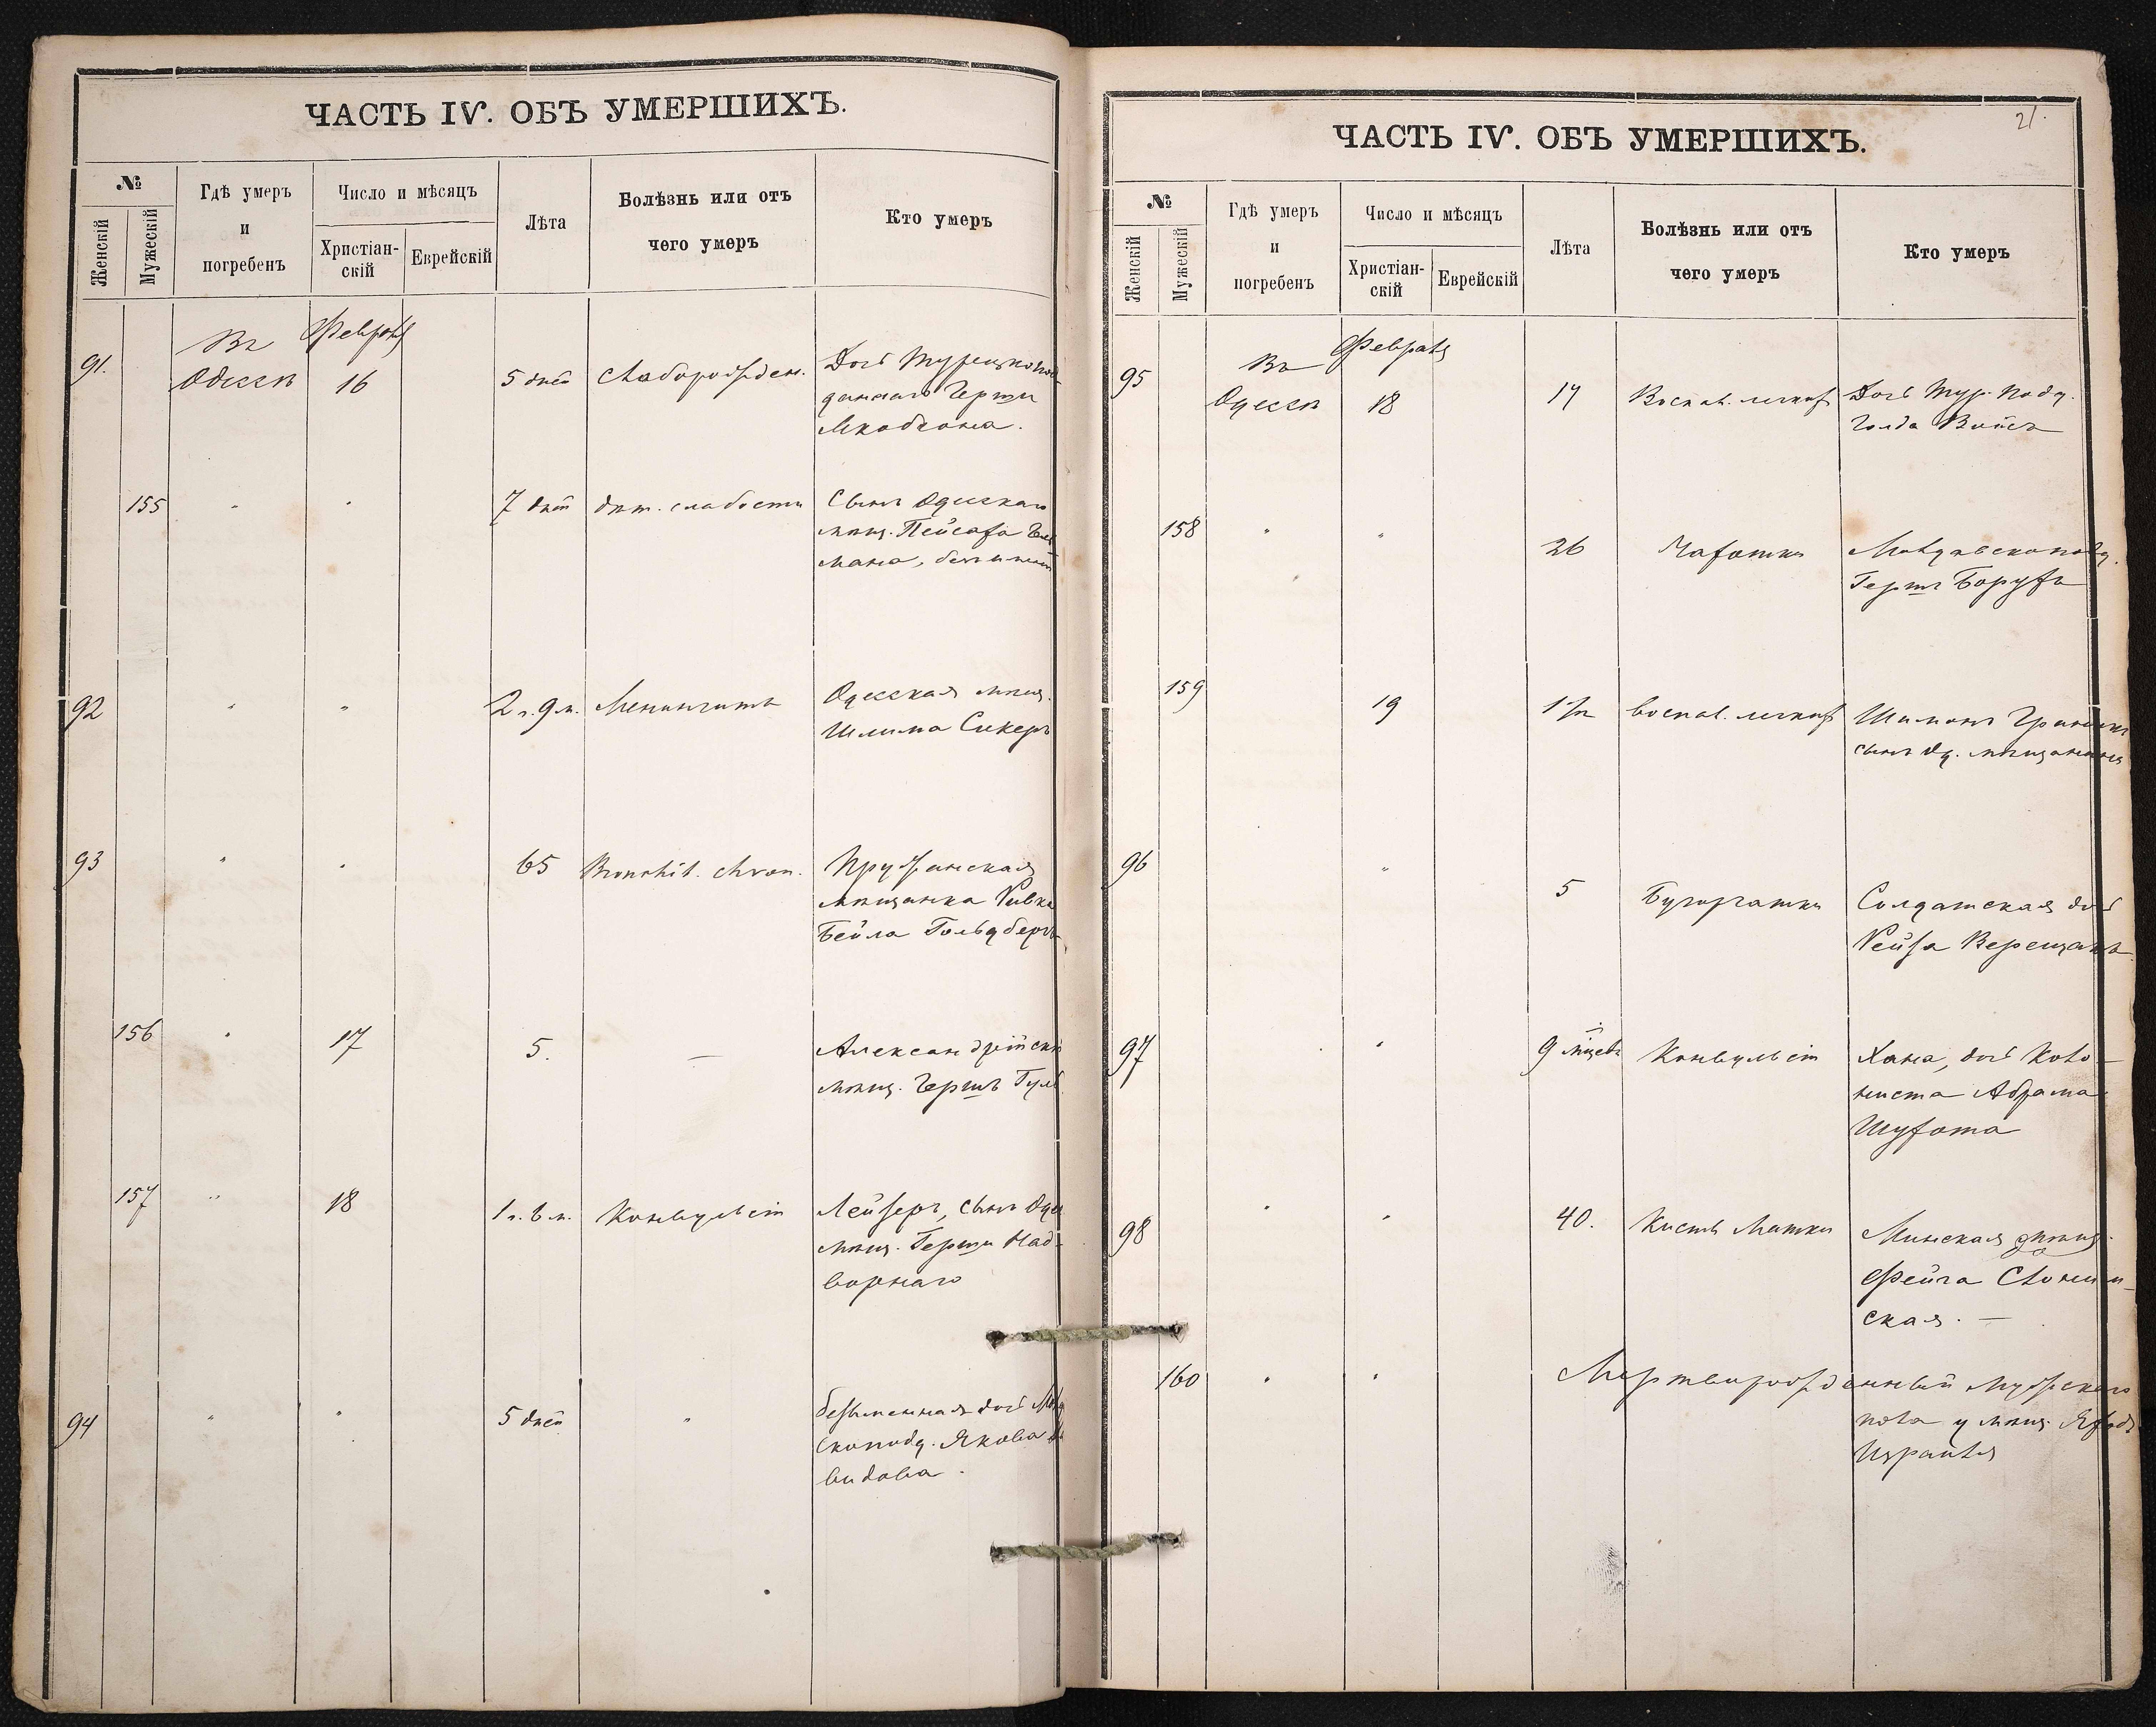 ЧАСТЬ IV. ОБЪ УМЕРШИХЪ.
№
Женскій
Мужескій
Гдѣ умеръ
и
погребенъ
Число и мѣсяцъ
Христіан-
скій
Еврейскій
Лѣта
Болѣзнь или отъ
чего умеръ
Кто умеръ
Въ Февраля
91. Одессѣ 16 5 дней Слаборожден. Дочь Турецкопод-
даннаго Герша
Якобсона.
155 " " 7 дней дѣт. слабости Сынъ Одесскаго
мѣщ. Пейсаха
мана,
92 " " 2 г. 9 м. Менингитъ Одесская мѣщ.
Шлима Сикеръ
93 " " 65 Bronchit. chron. Пружанская
мѣщанка Ривка
Бейла Гольдбергъ
156 " 17 5. — Александрійскій
мѣщ. Гершъ
157 " 18 1 г. 6 м. Конвульсіи Лейзеръ, сынъ Одес
мѣщ. Герша Над-
ворнаго
94 " " 5 дней " безъименная дочь
скопод. Якова
видова.
21.
ЧАСТЬ IV. ОБЪ УМЕРШИХЪ.
№
Женскій
Мужескій
Гдѣ умеръ
и
погребенъ
Число и мѣсяцъ
Христіан-
скій
Еврейскій
Лѣта
Болѣзнь или отъ
чего умеръ
Кто умеръ
Въ Февраля
95 Одессѣ 18 17 Воспал. легкихъ Дочь Тур. подд.
Голда
158 " " 26 Чахотки Молдавскоподд.
Гершъ Борухъ
159 19 воспал. легкихъ
сынъ Од. мѣщанина
96 " 5 Бугорчатки Солдатская дочь
Рейза Верещакъ
97 " " 9 мѣсяц Конвульсіи Хана, дочь Коло-
ниста Абрама
Шухата
98 " " 40. Кисть Матки Минская мѣщ.
Фейга Слоним-
ская. —
160 " " Мертворожденный мужскаго
пола у мѣщ.
Израиля